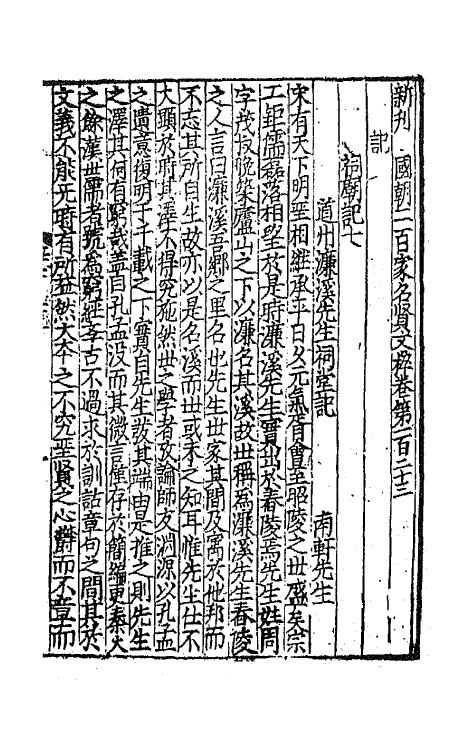 新刊　國朝二百家名賢文粹卷第一百二十三
記
祠廟記七
道州濂溪先生祠堂記　南軒先生
宋有天下明聖相繼承平日久元氣胥會至昭陵之世盛矣宗
工鉅儒磊落相望於是時濂溪先生實出於舂陵焉先生姓周
字茂叔晚築廬山之下以濂名其溪故世稱為濂溪先生舂陵
之人言曰濂溪吾鄉之里名也先生世家其間及寓於他邦而
不忘其所自生故亦以是名溪而世或未之知耳惟先生仕不
大顯於時其澤不得究施然世之學者攷論師友淵源以孔孟
之遺意復明于千載之下實自先生發其端由是推之則先生
之澤其何有窮哉蓋自孔孟沒而其微言僅存於簡編更秦火
之餘漢世儒者號為窮經學古不過求於訓詁章句之間其於
文義不能无時有所益然大本之不究聖賢之心鬱而不章而